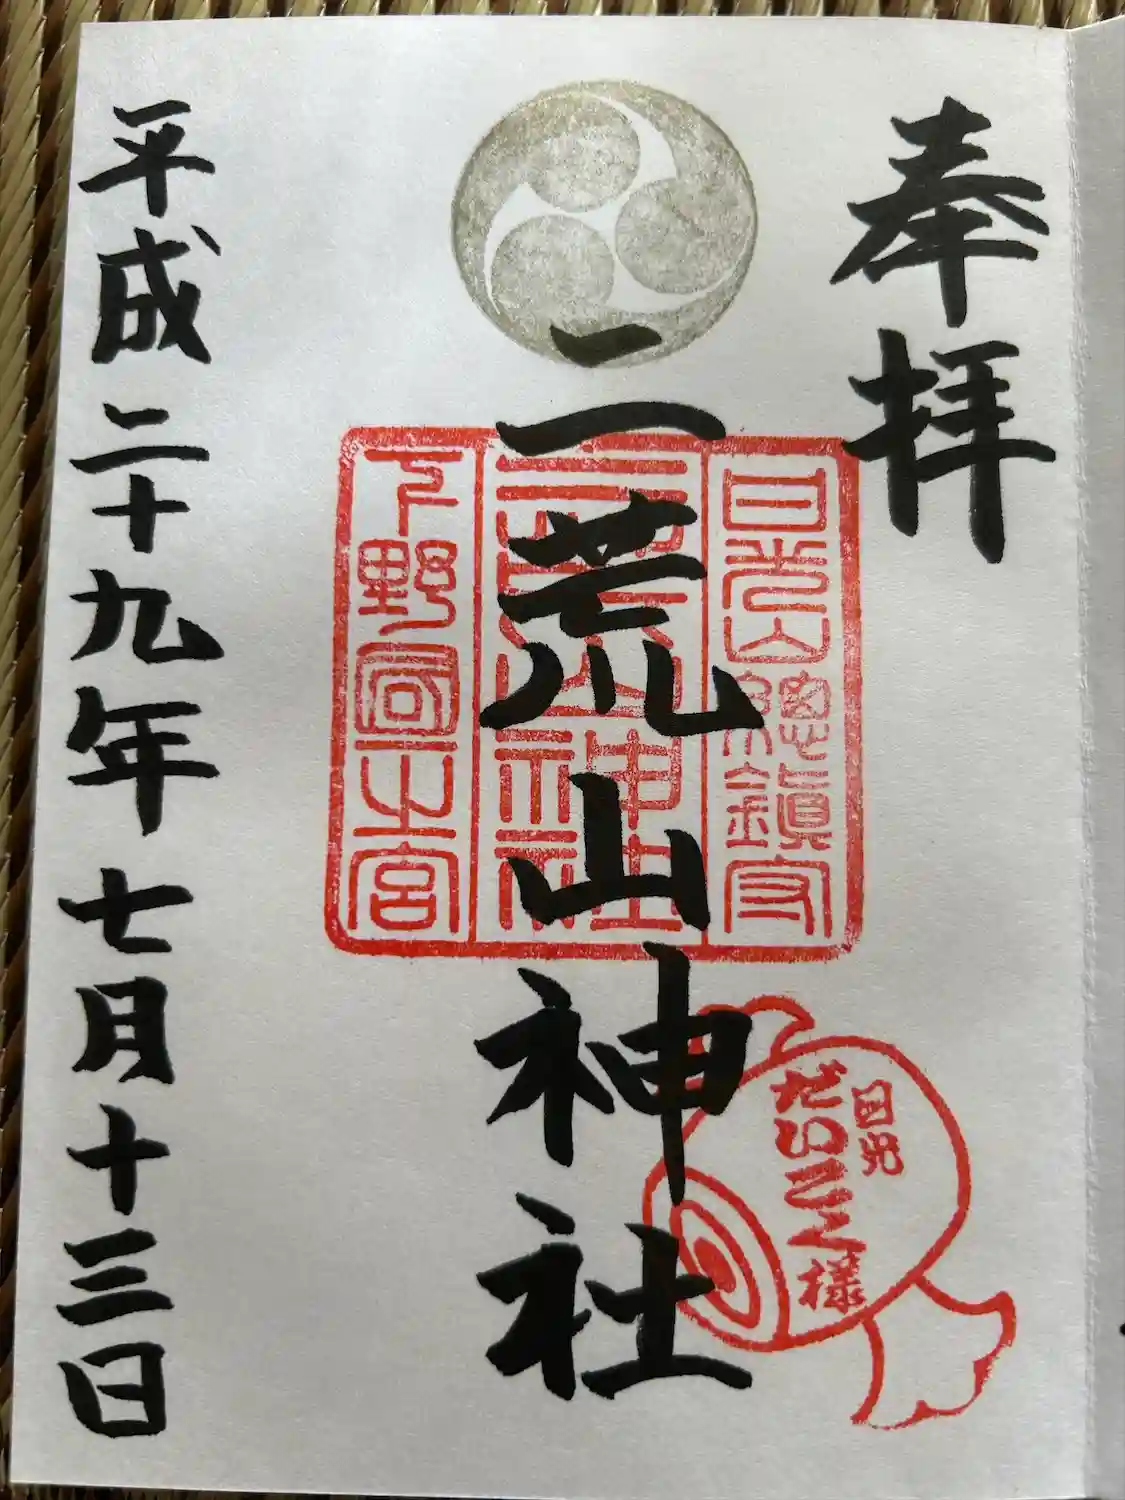 奉拝
日光山總鎮守
二荒山神社
二荒山神社
下野國一之宮
日光
だいこく様
平成二十九年七月十三日